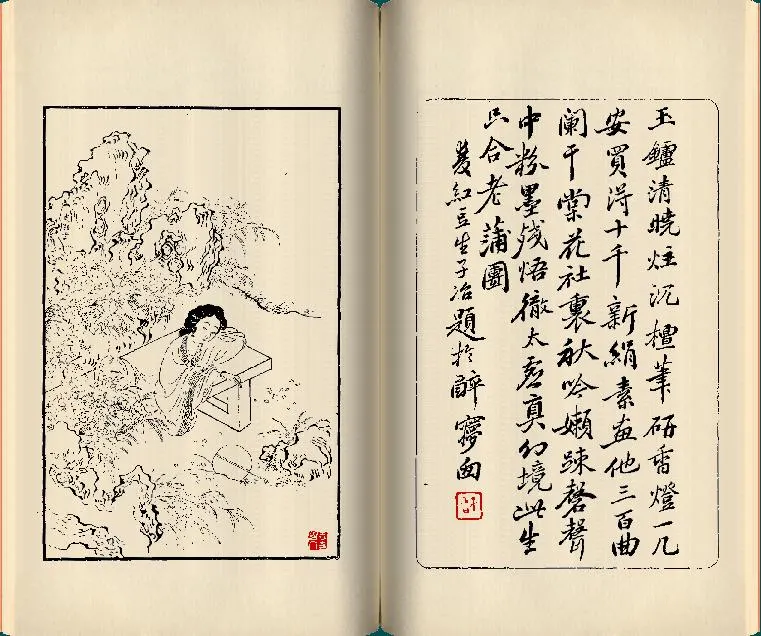 玉鑪清曉炷沉檀筆研香燈一几
安買得十千新絹素畫他三百曲
闌干棠花社裏秋吟嬾踈磬聲
中粉墨殘悟徹太虛真幻境此生
只合老蒲團
紅豆生子冶題於醉